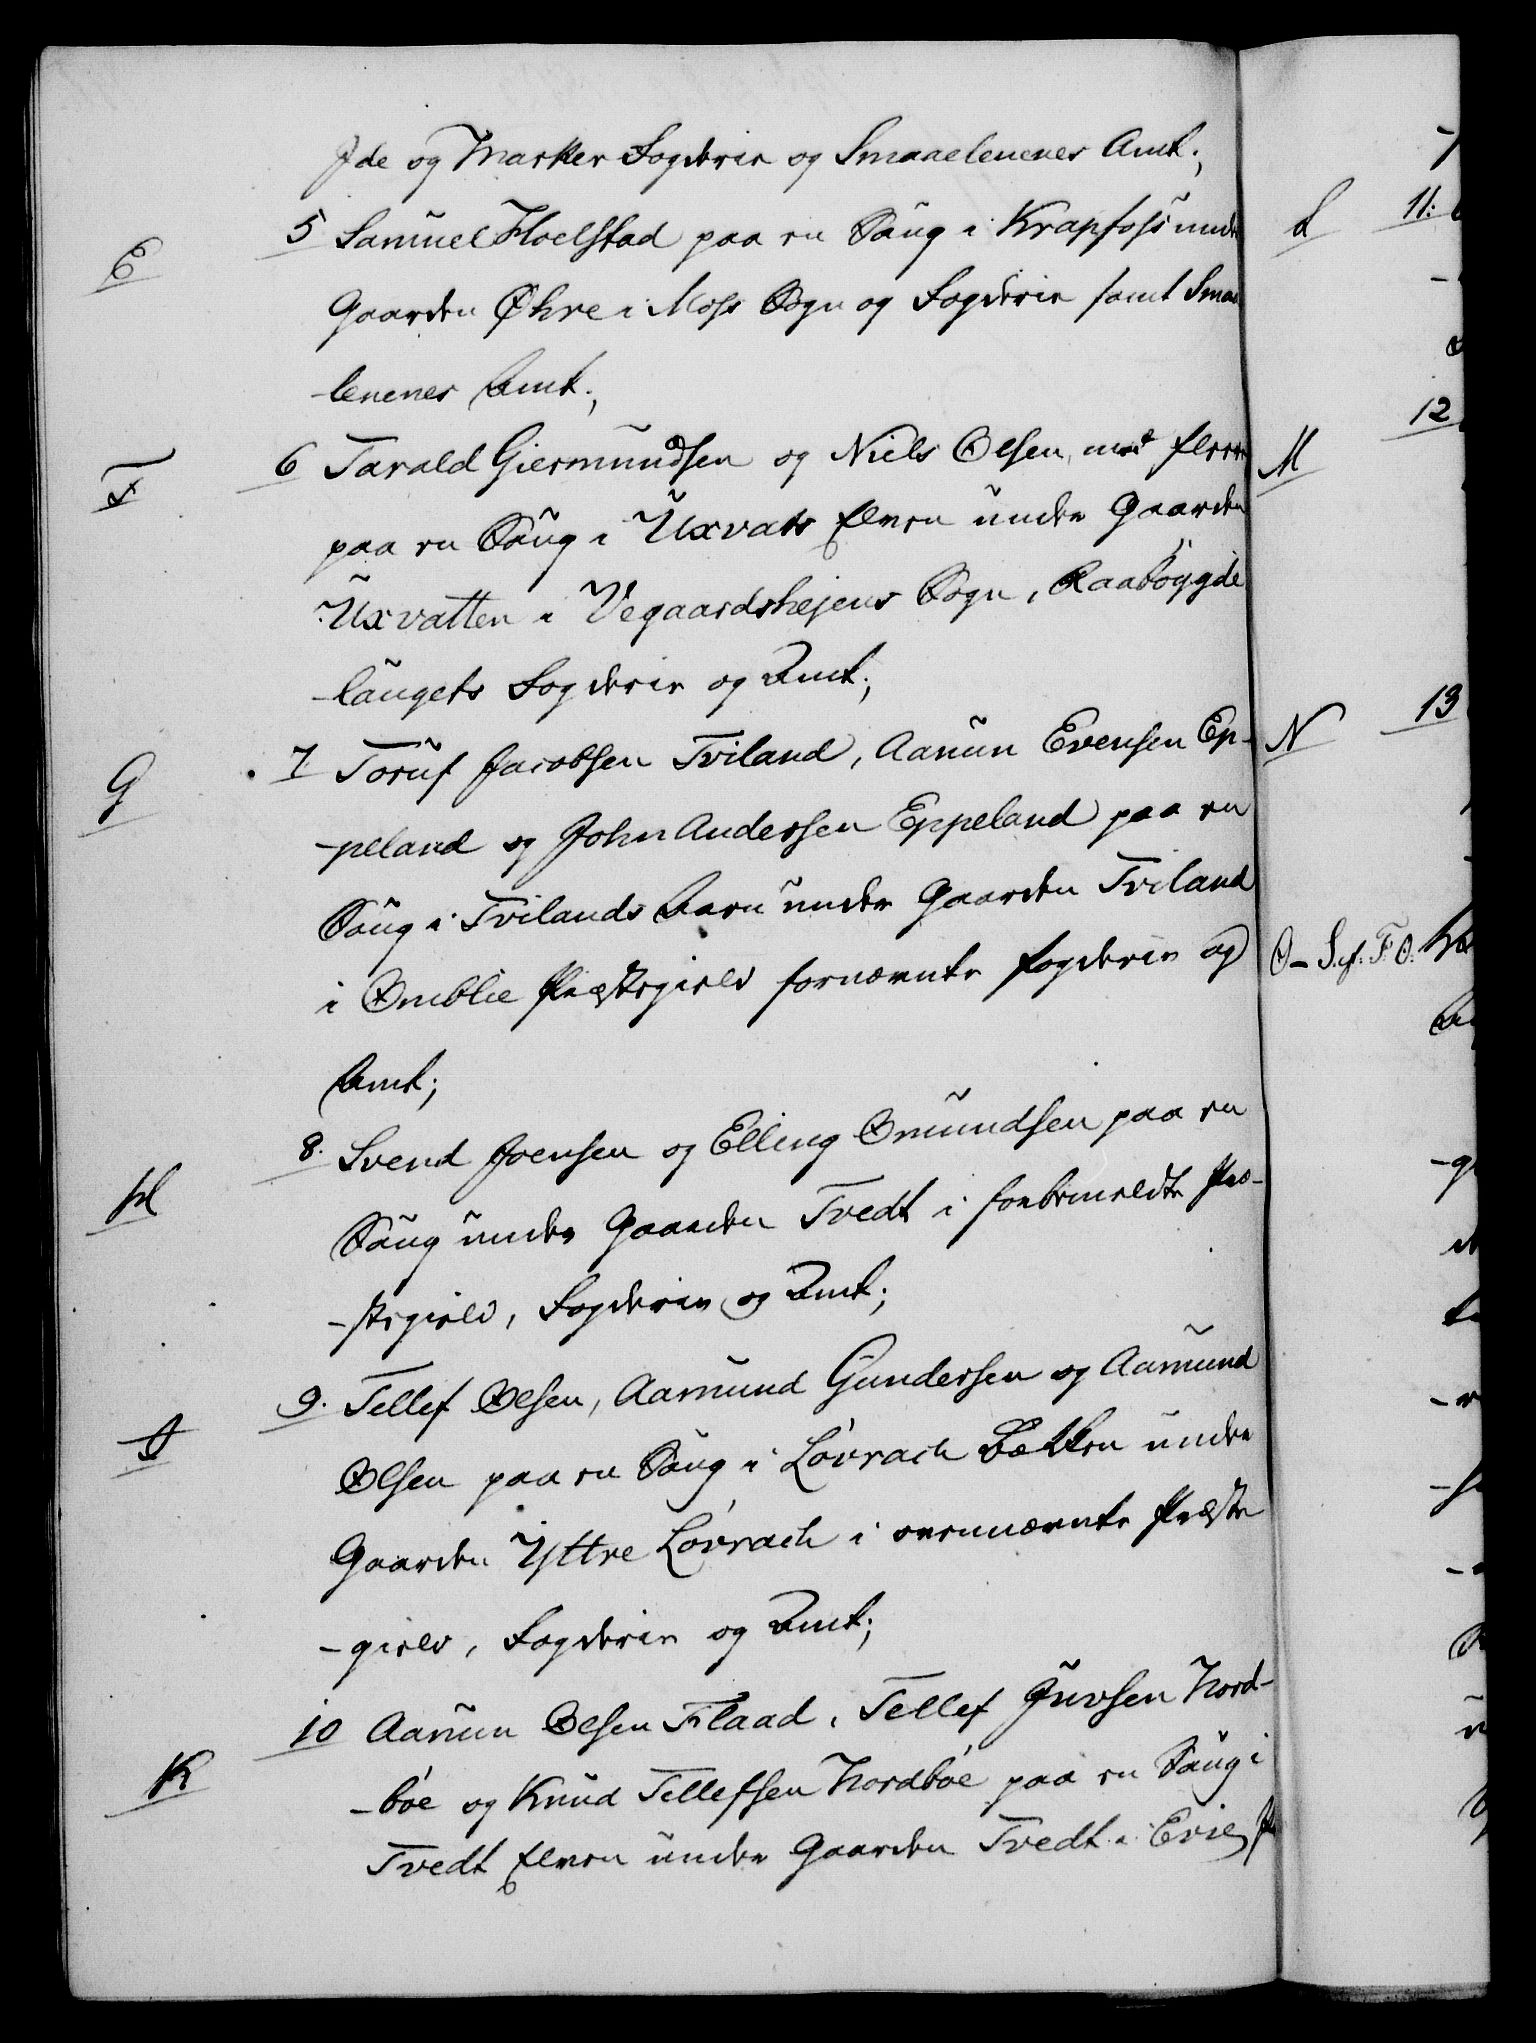 Jde og Marker Fogderie og Smaaelenenes Amt;
E
5 Samuel Hoelstad paa en Saug i Krapfoss under
Gaarden Øhre i Moss Sogn og Fogderie samt Smaa
-lenenes Amt;
F
6 Tarald Giermundsen og Niels Olsen, med fleere
paa en Saug i Uxvats Elven under Gaarden
Uxvatten i Vegaardshejens Sogn, Raabøygde
-laugets Fogderie og Amt;
G
7 Toruf Jacobsen Tviland, Aanun Evensen Ep-
-peland og John Andersen Eppeland paa en
Saug i Tvilands Aaen under Gaarden Tviland
i Omblie Præstegield fornævnte Fogderie og
Amt;
H
8. Svend Joensen og Elling Omundsen paa en
Saug under Gaarden Tvedt i forbemeldte Præ-
-stegield, Fogderie og Amt;
I
9. Tellef Olsen, Aamund Gundersen og Aamund
Olsen paa en Saug i Løvrach Bækken under
Gaarden Yttre Løvrach i ovennævnte Præste
-gield, Fogderie og Amt;
K
10 Aanun Olsen Flaad, Tellef Juvsen Nord-
-bøe og Knud Tellefsen Nordbøe paa en Saug i
Tvedt Elven under Gaarden Tvedt i Evie
L
11:
12
M
13
N